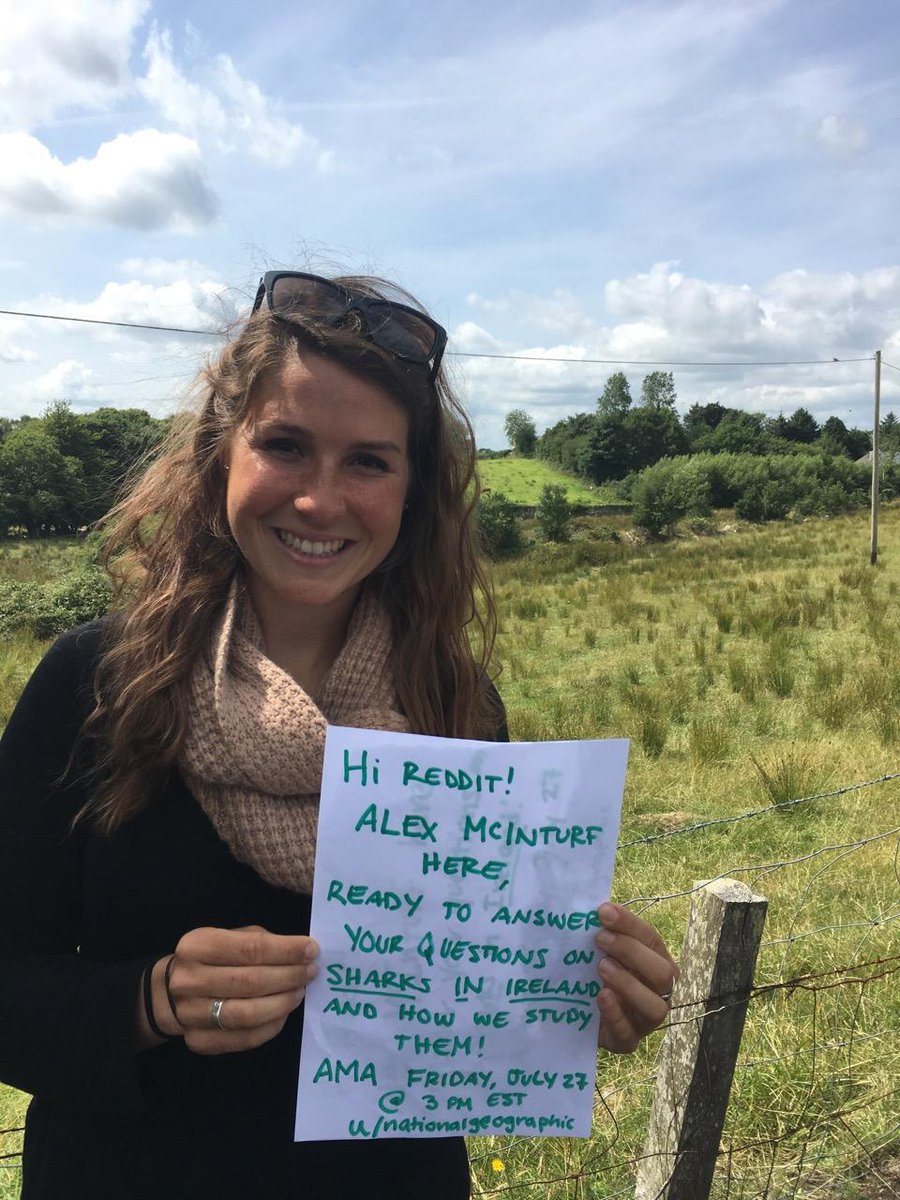 HI REDDIT!
ALEX MCINTURF
HERE,
READY TO ANSWER
YOUR QUESTIONS ON
SHARKS IN IRELAND
AND HOW WE STUDY
THEM!
AMA FRIDAY, JULY 27
@ 3 PM EST
u/nationalgeographic